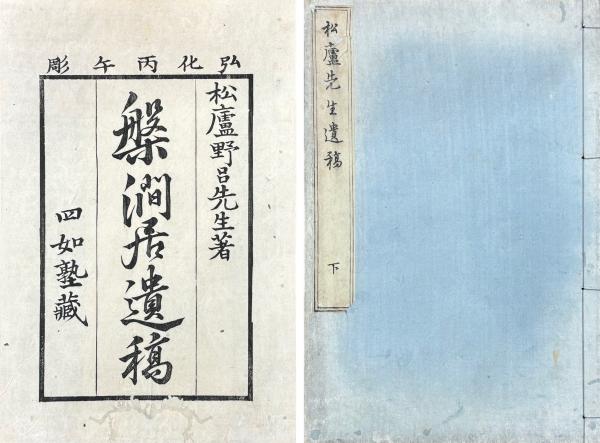 弘化丙午彫
松廬野呂先生著
槃澗居遺稿
四如塾藏
松廬先生遺稿
下